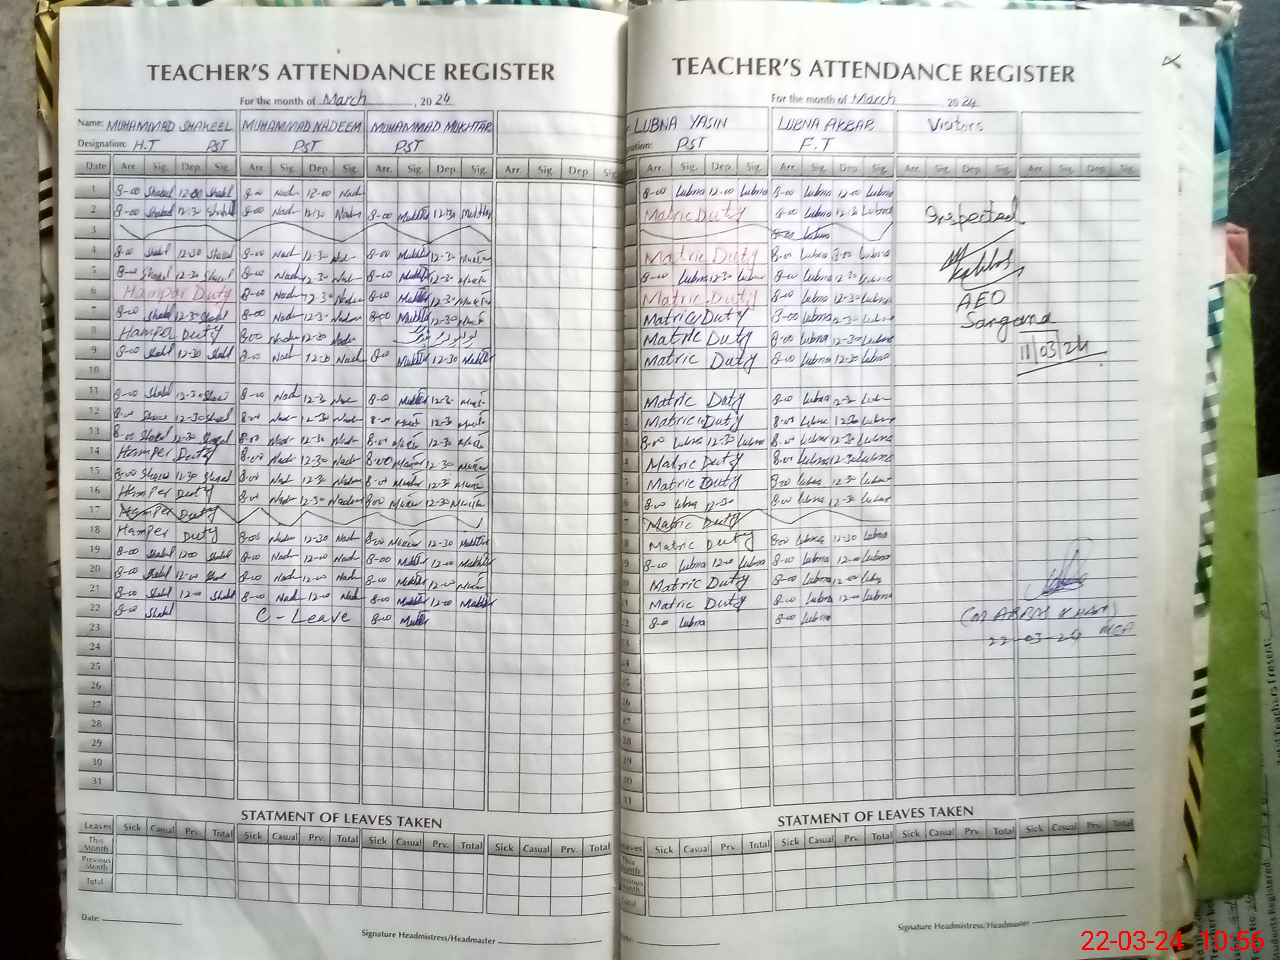 TEACHER'S ATTENDANCE REGISTER
For the month of March, 2024
Name: MUHAMMAD SHAKEEL MUHAMMAD NADEEM MUHAMMAD MUKHTAR
Designation: H.T PST PST PST
Date Arr. Sig. Dep. Sig. Arr. Sig. Dep. Sig. Arr. Sig. Dep. Sig. Arr. Sig. Dep. Sig.
1 8-00 Shakel 12-00 Shakel 8-00 Nad 12-00 Nad
2 8-00 Shakel 12-30 Shakel 8-00 Nad 12-30 Nad 8-00 Mukhtar 12-30 Mukhtar
3
4 8-00 Shakel 12-30 Shakel 8-00 Nad 12-30 Nad 8-00 Mukhtar 12-30
5 8-00 Shakel 12-30 8-00 Nad 12-30 Nad 8-00 Mukhtar 12-30
6 Hamper Duty 8-00 Nad 12-30 Nad 8-00 Mukhtar 12-30
7 8-00 Shakel 12-30 Shakel 8-00 Nad 12-30 Nad 8-00 Mukhtar 12-30
8 Hamper Duty 8-00 Nad 12-30 Nad
9 8-00 Shakel 12-30 Shakel 8-00 Nad 12-30 Nad 8-00 Mukhtar 12-30 Mukhtar
10
11 8-00 Shakel 12-30 8-00 Nad 12-30 Nad 8-00 Mukhtar 12-30
12 8-00 12-30 8-00 Nad 12-30 Nad 8-00 12-30
13 8-00 Shakel 12-30 8-00 Nad 12-30 Nad 8-00 12-30
14 Hamper Duty 8-00 Nad 12-30 Nad 8-00 12-30
15 8-00 12-30 8-00 Nad 12-30 Nad 8-00 12-30
16 Hamper Duty 8-00 Nad 12-30 Nad 8-00 12-30
17 Hamper Duty
18 Hamper Duty 8-00 Nad 12-30 Nad 8-00 12-30 Mukhtar
19 8-00 Shakel 12-00 Shakel 8-00 Nad 12-00 Nad 8-00 Mukhtar 12-00 Mukhtar
20 8-00 Shakel 12-00 8-00 Nad 12-00 Nad 8-00 Mukhtar 12-00
21 8-00 Shakel 12-00 Shakel 8-00 Nad 12-00 Nad 8-00 Mukhtar 12-00 Mukhtar
22 8-00 Shakel C-Leave 8-00
23
24
25
26
27
28
29
30
31
STATMENT OF LEAVES TAKEN
Leaves Sick Casual Prv. Total Sick Casual Prv. Total Sick Casual Prv. Total Sick Casual Prv. Total
This Month
Previous Month
Total
Date:
Signature Headmistress/Headmaster
TEACHER'S ATTENDANCE REGISTER
For the month of March 2024
LUBNA YASIN LUBNA AKBAR Visitors
PST F.T
Arr. Sig. Dep. Sig. Arr. Sig. Dep. Sig. Arr. Sig. Dep. Sig. Arr. Sig. Dep. Sig.
8-00 Lubna 12-00 Lubna 8-00 Lubna 12-00 Lubna
Matric Duty 8-00 Lubna 12-30 Lubna
8-00 Lubna
Matric Duty 8-00 Lubna Lubna
8-00 Lubna 12-30 Lubna 8-00 Lubna 12-30 Lubna
Matric Duty 8-00 Lubna 12-30 Lubna
Matric Duty 8-00 Lubna 12-30 Lubna
Matric Duty 8-00 Lubna 12-30 Lubna
Matric Duty 8-00 Lubna 12-30 Lubna
Matric Duty 8-00 Lubna 12-30 Lubna
Matric Duty 8-00 Lubna 12-30 Lubna
8-00 Lubna 12-30 Lubna 8-00 Lubna 12-30 Lubna
Matric Duty 8-00 Lubna 12-30 Lubna
Matric Duty 8-00 Lubna 12-30 Lubna
8-00 Lubna 12-30 8-00 Lubna 12-30 Lubna
Matric Duty
Matric Duty 8-00 Lubna 12-30 Lubna
8-00 Lubna 12-00 Lubna 8-00 Lubna 12-00 Lubna
Matric Duty 8-00 Lubna 12-00
Matric Duty 8-00 Lubna 12-00 Lubna
8-00 Lubna 8-00 Lubna
Inspected
AEO
Sargana
11/03/24
22-03-24 MEA
STATMENT OF LEAVES TAKEN
Sick Casual Prv. Total Sick Casual Prv. Total Sick Casual Prv. Total Sick Casual Prv. Total
Signature Headmistress/Headmaster
22-03-24 10:56